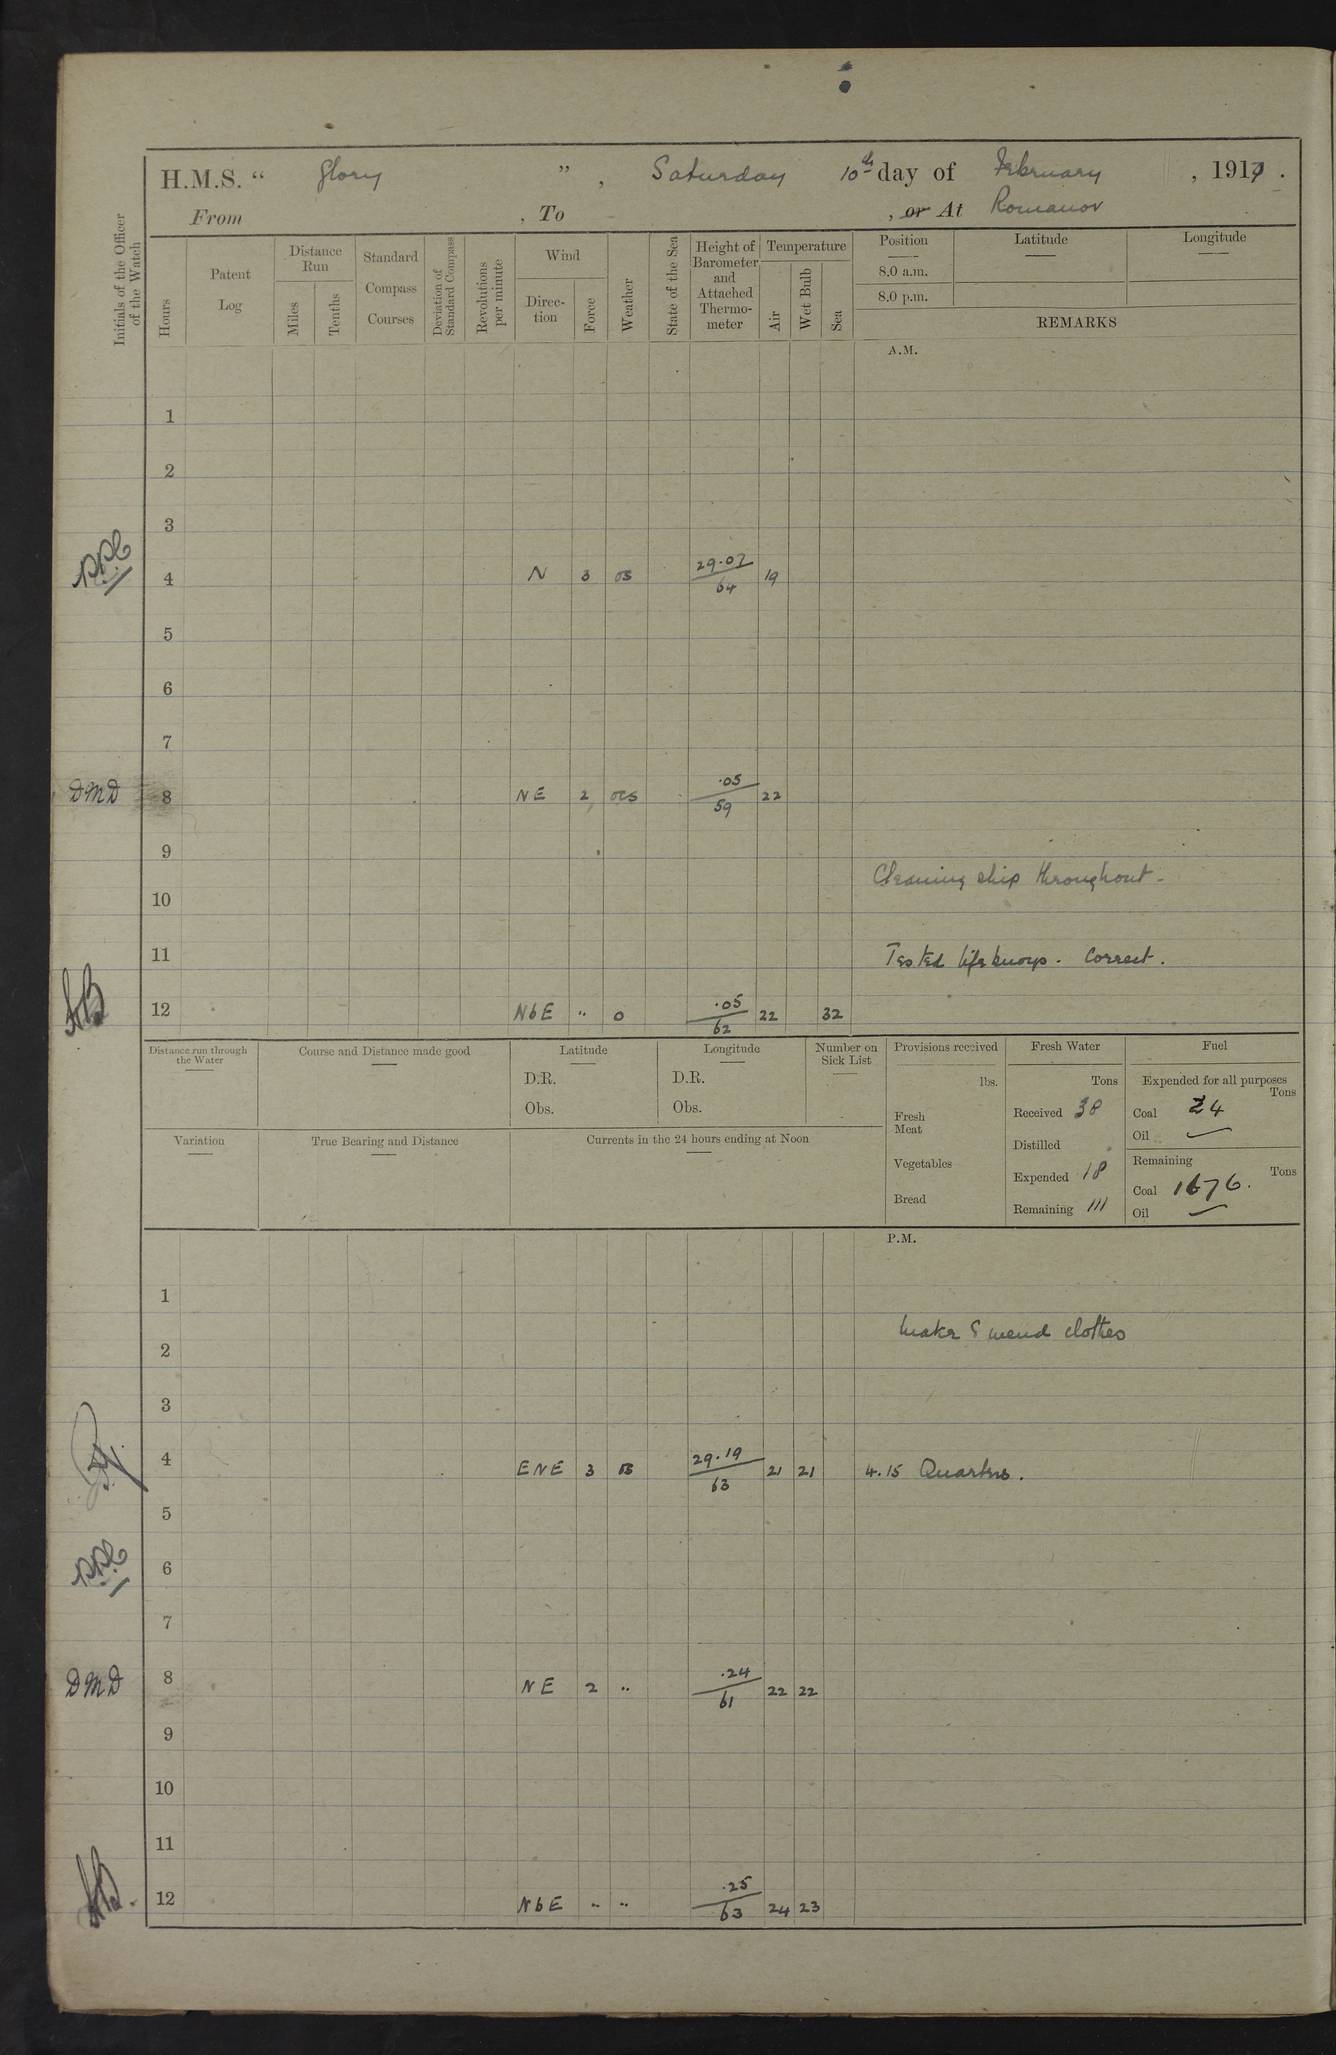 H.M.S. “ Glory ” , Saturday 10th day of February , 1917 .
From , To , or At Romanov
Initials of the Officer of the Watch
Hours
Patent Log
Distance Run
Miles
Tenths
Standard Compass Courses
Deviation of Standard Compass
Revolutions per minute
Wind
Direc-tion
Force
Weather
State of the Sea
Height of Barometer and Attached Thermo-meter
Temperature
Air
Wet Bulb
Sea
Position Latitude Longitude
8.0 a.m.
8.0 p.m.
REMARKS
A.M.
1
2
3
4 N 3 os 29.07/64 19
5
6
7
DMD 8 NE 2 ocs .05/59 22
9
Cleaning ship throughout -
10
11 Tested lifebuoys. Correct.
12 NbE " o .05/62 22 32
Distance run through the Water
Course and Distance made good
Latitude
D.R.
Obs.
Longitude
D.R.
Obs.
Number on Sick List
Provisions received
lbs.
Fresh Meat
Vegetables
Bread
Fresh Water
Tons
Received 38
Distilled
Expended 18
Remaining 111
Fuel
Expended for all purposes
Tons
Coal 24
Oil
Remaining
Tons
Coal 1676.
Oil
Variation
True Bearing and Distance
Currents in the 24 hours ending at Noon
P.M.
1
make & mend clothes
2
3
4 ENE 3 29.19/63 21 21 4.15 Quarters.
5
6
7
DMD 8 NE 2 " .24/61 22 22
9
10
11
12 NbE " " .25/63 24 23